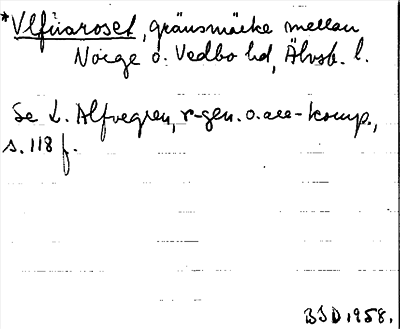 *Vlfuaroset, gränsmärke mellan
Norge o. Vedbo hd, Älvsb. l.
Se L. Alfvegren, r-gen. o. are-komp.,
s. 118 f.
BSD 1958.